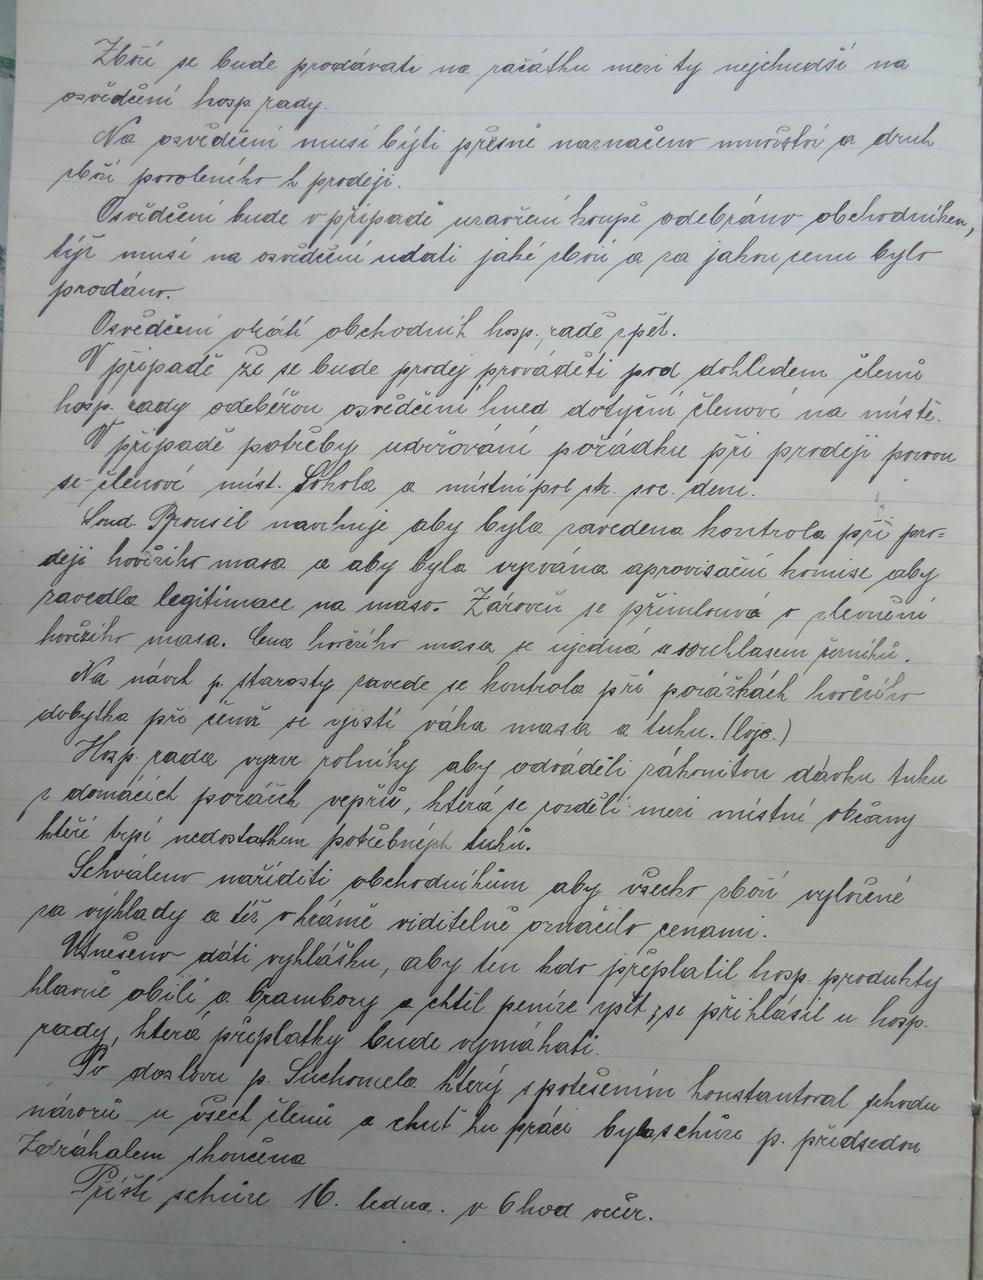 Zboží se bude prodávati na začátku mezi ty nejchudší na
osvědčení hosp rady.
Na osvědčení musí býti přesně naznačeno množství a druh
zboží povoleného k prodeji.
Osvědčení bude v případě uzavření koupě odebráno obchodníkem,
týž musí na osvědčení udati jaké zboží a za jakou cenu bylo
prodáno.
Osvědčení vrátí obchodník hosp. radě zpět.
V případě že se bude prodej prováděti pod dohledem členů
hosp. rady odeběřou osvědčení hned dotyční členové na místě.
V případě potřeby udržování pořádku při prodeji pozvou
se členové míst. Sokola a místní pol sk. soc. dem.
Soud. Brousil navrhuje aby byla zavedena kontrola při pro=
deji hovězího masa a aby byla vyzvána aprovisační komise aby
zavedla legitimace na maso. Zároveň se přimlouvá o zlevnění
hovězího masa. Cena hovězího masa se ujedná se souhlasem řezníků.
Na návrh p. starosty zavede se kontrola při porážkách hovězího
dobytka při čemž se zjistí váha masa a tuku. (loje.)
Hosp. rada vyzve rolníky aby odváděli zákonitou dávku tuku
z domácích porážek vepřů, která se rozdělí mezi místní občany
kteří trpí nedostatkem potřebných tuků.
Schváleno naříditi obchodníkům aby všecko zboží vyložené
za výklady a též v krámě viditelně označilo cenami.
Usneseno dáti vyhlášku, aby ten kdo přeplatil hosp. produkty
hlavně obilí a brambory a chtil peníze zpět, se přihlásil u hosp.
rady, která přeplatky bude vymáhati.
Po doslovu p. Suchomela který s potěšením konstantoval shodu
názorů u všech členů a chuť ku práci byla schůze p. předsedou
Zdráhalem skončena
Příští schůze 16. ledna. v 6 hod večer.